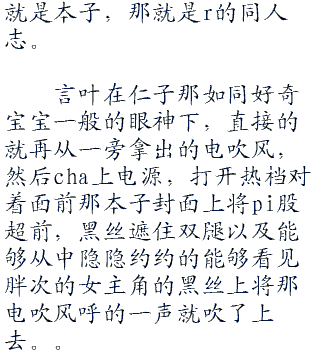 就是本子，那就是r的同人
志。
言叶在仁子那如同好奇
宝宝一般的眼神下，直接的
就再从一旁拿出的电吹风，
然后cha上电源，打开热档对
着面前那本子封面上将pi股
超前，黑丝遮住双腿以及能
够从中隐隐约约的能够看见
胖次的女主角的黑丝上将那
电吹风呼的一声就吹了上
去。。